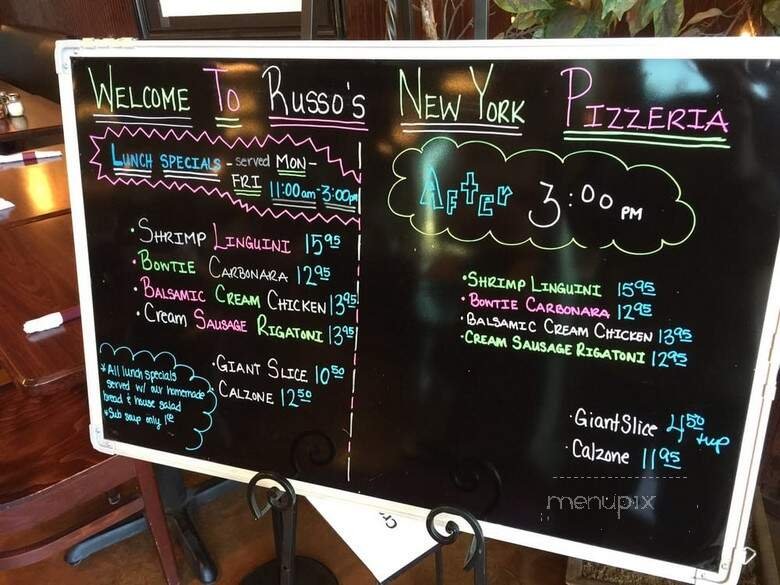 WELCOME TO RUSSO'S NEW YORK PIZZERIA
LUNCH SPECIALS - served MON-
FRI 11:00am-3:00pm
• SHRIMP LINGUINI 15 95
• BOWTIE CARBONARA 12 95
• BALSAMIC CREAM CHICKEN 13 95
• CREAM SAUSAGE RIGATONI 13 95
• GIANT SLICE 10 50
• CALZONE 12 50
* All lunch specials
served w/ our homemade
bread & house salad
* Sub soup only
AFTER 3:00 PM
• SHRIMP LINGUINI 15 95
• BOWTIE CARBONARA 12 95
• BALSAMIC CREAM CHICKEN 13 95
• CREAM SAUSAGE RIGATONI 12 95
• Giant Slice 4 50 + up
• Calzone 11 95
menupix